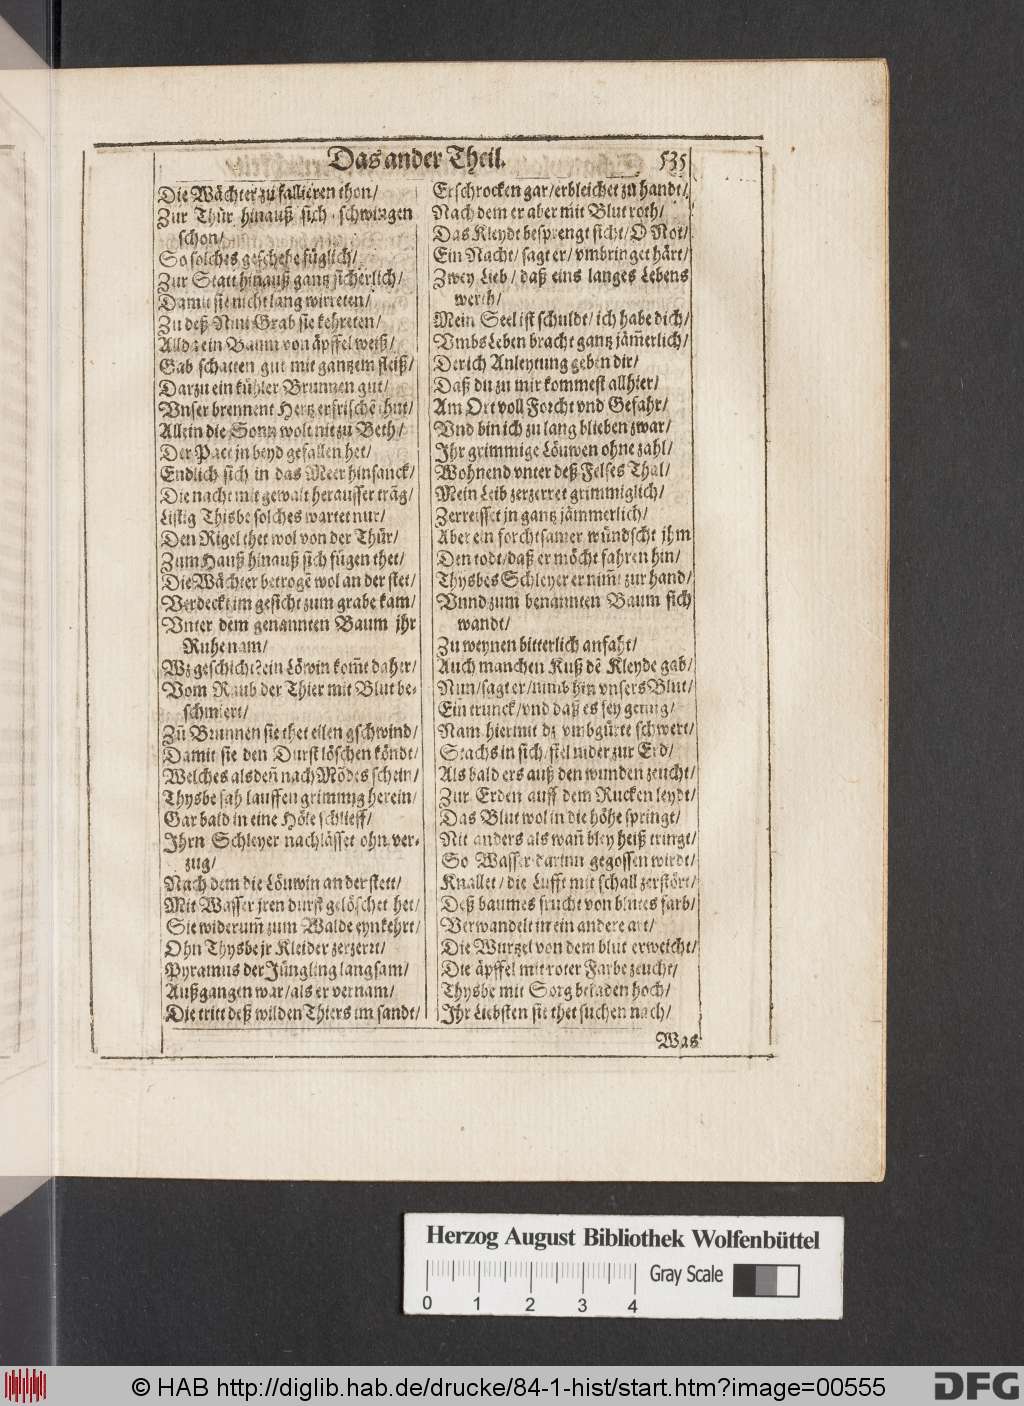 Das ander Theil. 535
Die Wächter zu fallieren thon/
Zur Thür hinauß sich schwingen
schon/
So solches geschehe füglich/
Zur Statt hinauß gantz sicherlich/
Damit sie nicht lang wirreten/
Zu deß Nini Grab sie kehreten/
Allda ein Baum von äpffel weiß/
Gab schatten gut mit gantzem fleiß/
Darzu ein kühler Brunnen gut/
Vnser brennent Hertz erfrischē thut/
Allein die Sontz wolt nit zu Beth/
Der Pact jn beyd gefallen het/
Endlich sich in das Meer hinsanck/
Die nacht mit gewalt herausser träg/
Listig Thisbe solches wartet nur/
Den Rigel thet wol von der Thür/
Zum Hauß hinauß sich fügen thet/
Die Wächter betrogē wol an der stet/
Verdeckt im gesicht zum grabe kam/
Vnter dem genannten Baum jhr
Ruhe nam/
Wz geschicht? ein Löwin kom̄t daher/
Vom Raub der Thier mit Blut be-
schmiert/
Zů Brunnen sie thet eilen gschwind/
Damit sie den Durst löschen köndt/
Welches alsdeñ nach Mōdes schein/
Thysbe sah lauffen grimmig herein/
Gar bald in eine Höle schlieff/
Ihrn Schleyer nachlässet ohn ver-
zug/
Nach dem die Löuwin an der stett/
Mit Wasser jren durst gelöschet het/
Sie widerum̄ zum Walde eynkehrt/
Ohn Thysbe jr Kleider zerzerrt/
Pyramus der Jüngling langsam/
Außgangen war/ als er vernam/
Die tritt deß wilden Thiers im sandt/
Erschrocken gar/ erbleichet zu handt/
Nach dem er aber mit Blut roth/
Das Kleydt besprengt sicht/ O Not/
Ein Nacht/ sagt er/ vmbringet härt/
Zwey Lieb/ daß eins langes Lebens
werth/
Mein Seel ist schuldt/ ich habe dich/
Vmbs Leben bracht gantz jäm̄erlich/
Der ich Anleytung geben dir/
Daß du zu mir kommest allhier/
Am Ort voll Forcht vnd Gefahr/
Vnd bin ich zu lang blieben zwar/
Ihr grimmige Löuwen ohne zahl/
Wohnend vnter deß Felses Thal/
Mein Leib zerzerret grimmiglich/
Zerreisset jn gantz jämmerlich/
Aber ein forchtsamer wündscht jhm
Den todt/ daß er möcht fahren hin/
Thysbes Schleyer er nim̄t zur hand/
Vnnd zum benannten Baum sich
wandt/
Zu weynen bitterlich anfaht/
Auch manchen Kuß dē Kleyde gab/
Nun/ sagt er/ nimb hin vnsers Blut/
Ein trunck/ vnd daß es sey genug/
Nam hiermit dz vmbgürte schwert/
Stachs in sich/ fiel nider zur Erd/
Als bald ers auß den wunden zeucht/
Zur Erden auff dem Rucken leydt/
Das Blut wol in die höhe springt/
Nit anders als wañ bley heiß tringt/
So Wasser darinn gegossen wirdt/
Knallet/ die Lufft mit schall zerstört/
Deß baumes frucht von blutes farb/
Verwandelt in ein andere art/
Die Wurtzel von dem blut erweicht/
Die äpffel mit roter Farbe zeucht/
Thysbe mit Sorg beladen hoch/
Ihr Liebsten sie thet suchen nach/
Was
Herzog August Bibliothek Wolfenbüttel
Gray Scale
0 1 2 3 4
© HAB http://diglib.hab.de/drucke/84-1-hist/start.htm?image=00555
DFG